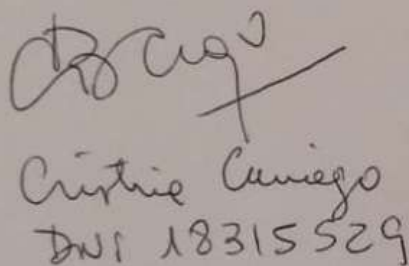 Cristina Caniego
DNI 18315529